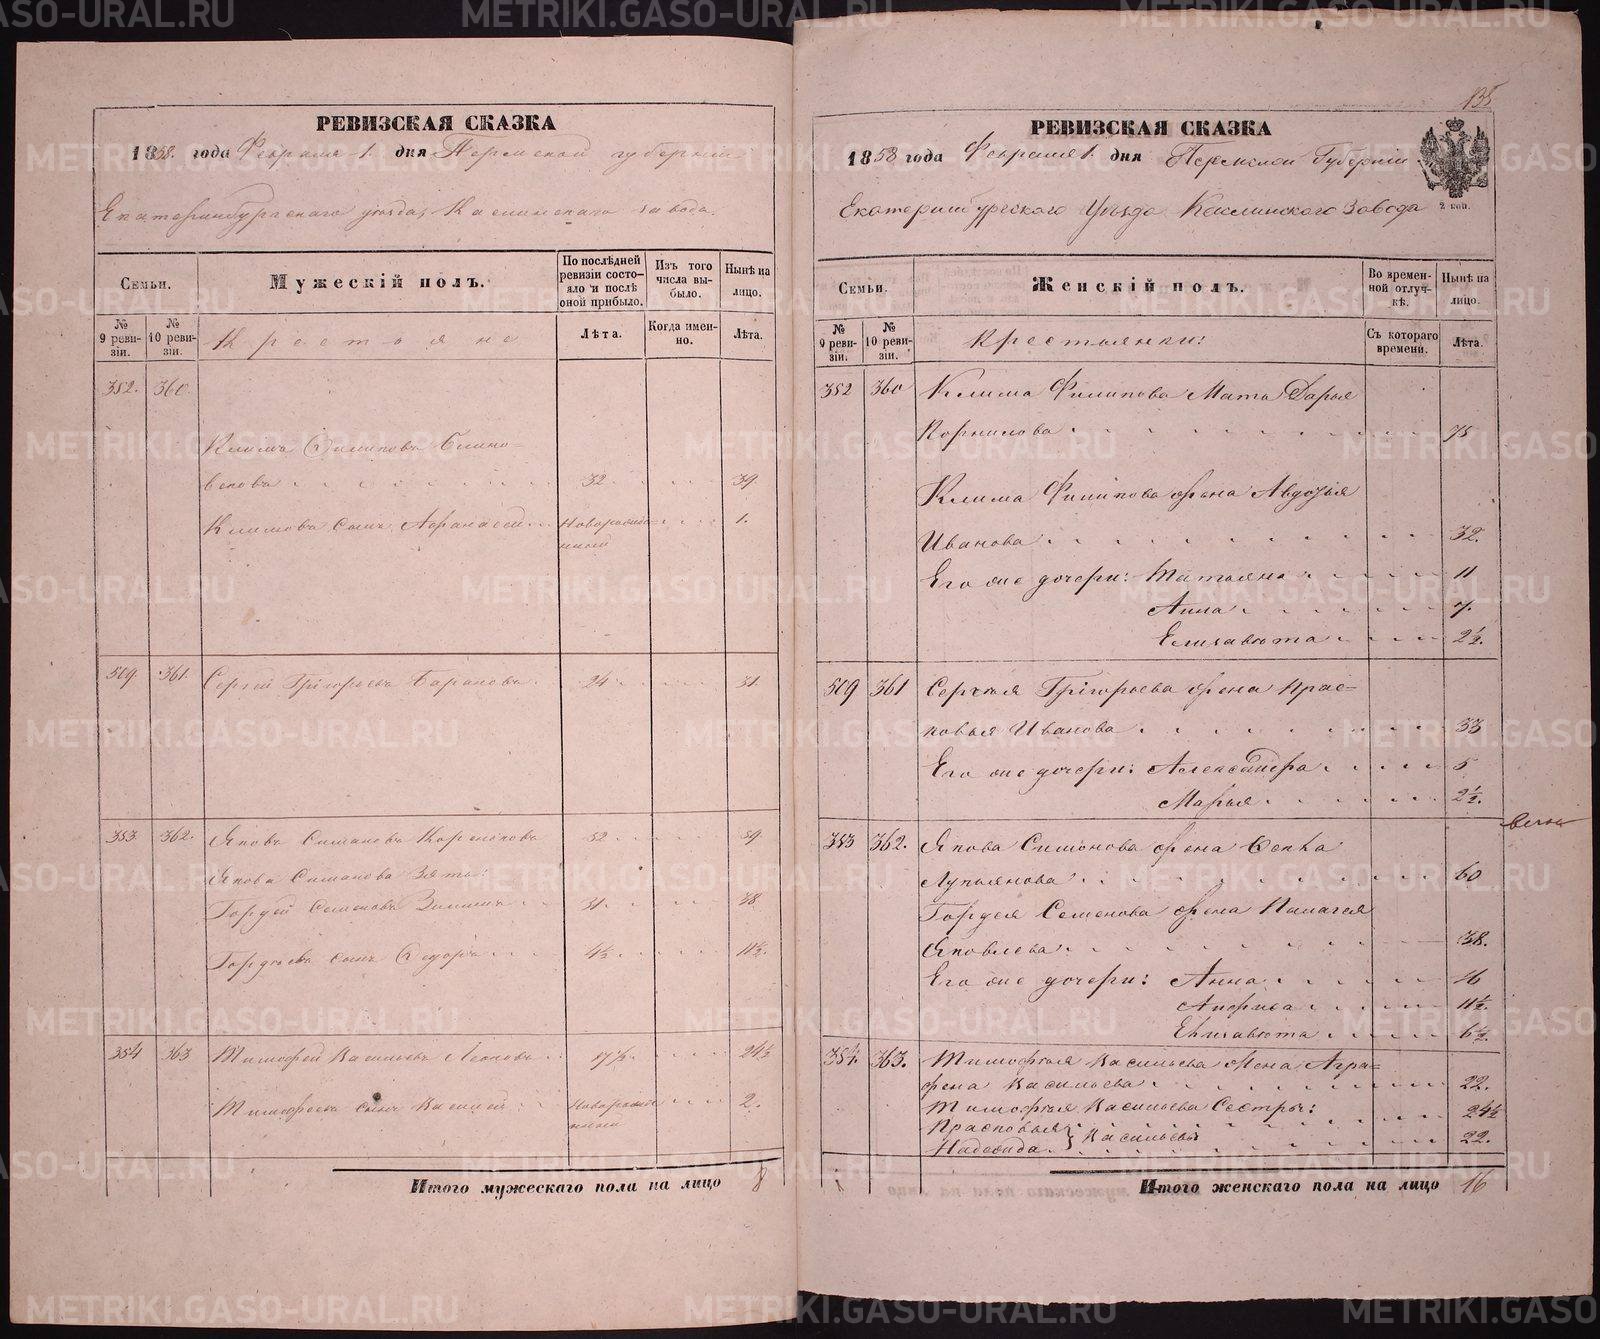 РЕВИЗСКАЯ СКАЗКА
1858. года Февраля 1. дня Пермской губернии
Екатеринбургскаго уезда, Каслинскаго завода.
Семьи.
Мужескій полъ.
По послѣдней ревизіи состояло и послѣ оной прибыло.
Изъ того числа выбыло.
Нынѣ на лицо.
№ 9 ревизіи.
№ 10 ревизіи.
Крестьяне
Лѣта.
Когда именно.
Лѣта.
352. 360.
Климъ Филиповъ Блино-
Климова сынъ Афанасей Новорожденный 1.
32 39.
509. 361. Сергей Григорьевъ Барановъ 24 31.
353. 362. Яковъ Симановъ 52 59.
Якова Симанова Зять:
Гордей Семеновъ Зиминъ 31. 38.
Гордеева сынъ Федоръ 4½ 11½.
354 363 Тимофей Васильевъ Леоновъ 17½. 24½
Тимофеева сынъ Василей Новорожденный 2.
Итого мужескаго пола на лицо 8
135
РЕВИЗСКАЯ СКАЗКА
1858 года Февраля 1. дня Пермской Губерніи
2 коп.
Екатеринбургскаго Уѣзда Каслинскаго Завода
Семьи.
Женскій полъ.
Во временной отлучкѣ.
Нынѣ на лицо.
№ 9 ревизіи.
№ 10 ревизіи.
Крестьянки:
Съ котораго времени.
Лѣта.
352 360 Клима Филипова Мать Дарья
Корнилова 75
Клима Филипова жена Авдотья
Иванова 32.
Его же дочери: Татьяна 11
Анна 7.
Елизавета 2½.
509 361 Сергѣя Григорьева жена Прас-
ковья Иванова 33
Его же дочери: Александра 5
Марья 2½.
353 362. Якова Симонова жена
Лукьянова 60
Гордея Семенова жена Палагея
Яковлева 38.
Его же дочери: Анна 16
Анфиса 11½.
Елизавета 6½.
354. 363. Тимофея Васильева жена Агра-
фена Васильева 22.
Тимофея Васильева Сестры:
Прасковья 24½
Надежда } Васильевы 22.
Итого женскаго пола на лицо 16
METRIKI.GASO-URAL.RU